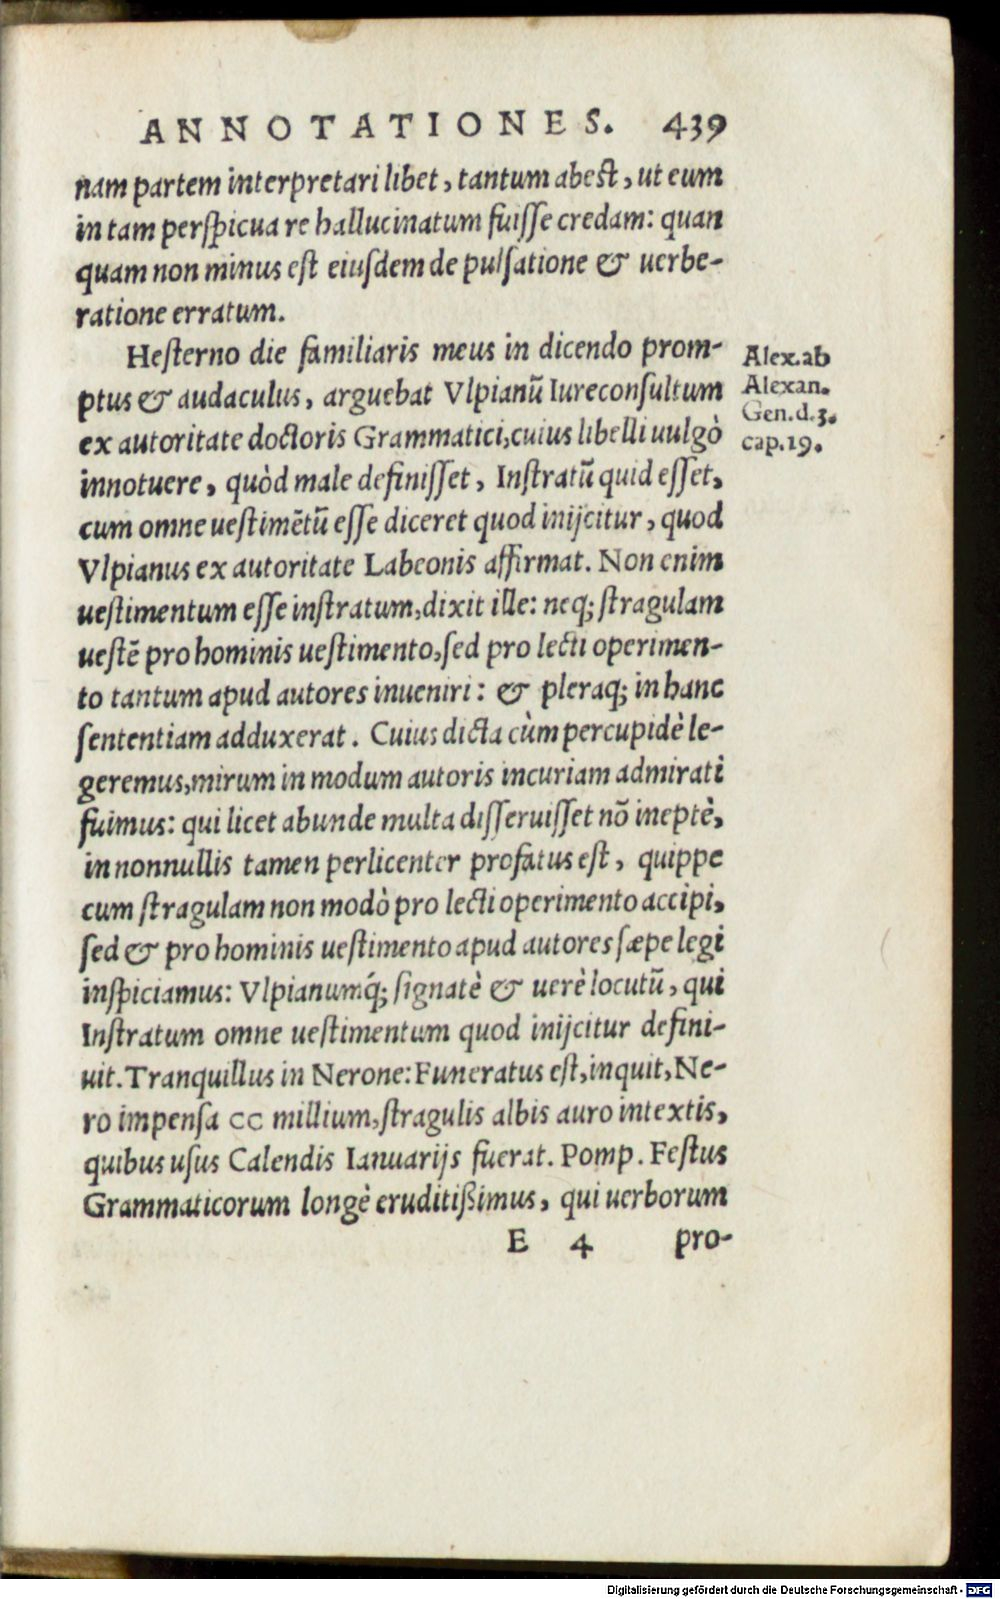 ANNOTATIONES. 439
nam partem interpretari libet, tantum abest, ut eum
in tam perspicua re hallucinatum fuisse credam: quan
quam non minus est eiusdem de pulsatione & uerbe-
ratione erratum.
Hesterno die familiaris meus in dicendo prom-
ptus & audaculus, arguebat Vlpianū Iureconsultum
ex autoritate doctoris Grammatici, cuius libelli uulgò
innotuere, quòd male definisset, Instratū quid esset,
cum omne uestimētū esse diceret quod inijcitur, quod
Vlpianus ex autoritate Labeonis affirmat. Non enim
uestimentum esse instratum, dixit ille: neq; stragulam
uestē pro hominis uestimento, sed pro lecti operimen-
to tantum apud autores inueniri: & pleraq; in hanc
sententiam adduxerat. Cuius dicta cùm percupidè le-
geremus, mirum in modum autoris incuriam admirati
fuimus: qui licet abunde multa disseruisset nō ineptè,
in nonnullis tamen perlicenter profatus est, quippe
cum stragulam non modò pro lecti operimento accipi,
sed & pro hominis uestimento apud autores sæpe legi
inspiciamus: Vlpianumq́; signatè & uerè locutū, qui
Instratum omne uestimentum quod inijcitur defini-
uit. Tranquillus in Nerone: Funeratus est, inquit, Ne-
ro impensa cc millium, stragulis albis auro intextis,
quibus usus Calendis Ianuarijs fuerat. Pomp. Festus
Grammaticorum longè eruditißimus, qui uerborum
E 4 pro-
Alex. ab
Alexan.
Gen. d. 3.
cap. 19.
Digitalisierung gefördert durch die Deutsche Forschungsgemeinschaft - DFG